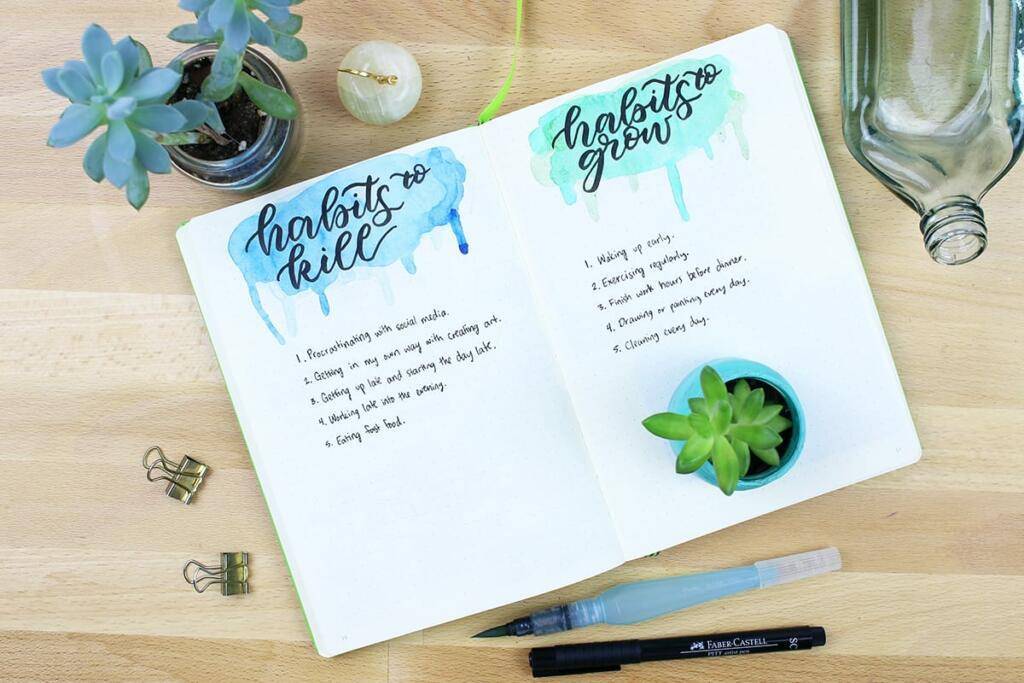 habits to
kill
1. Procrastinating with social media.
2. Getting in my own way with creating art.
3. Getting up late and starting the day late.
4. Working late into the evening.
5. Eating fast food.
habits to
grow
1. Waking up early.
2. Exercising regularly.
3. Finish work hours before dinner.
4. Drawing or painting every day.
5. Cleaning every day.
FABER-CASTELL
PITT artist pen
SC